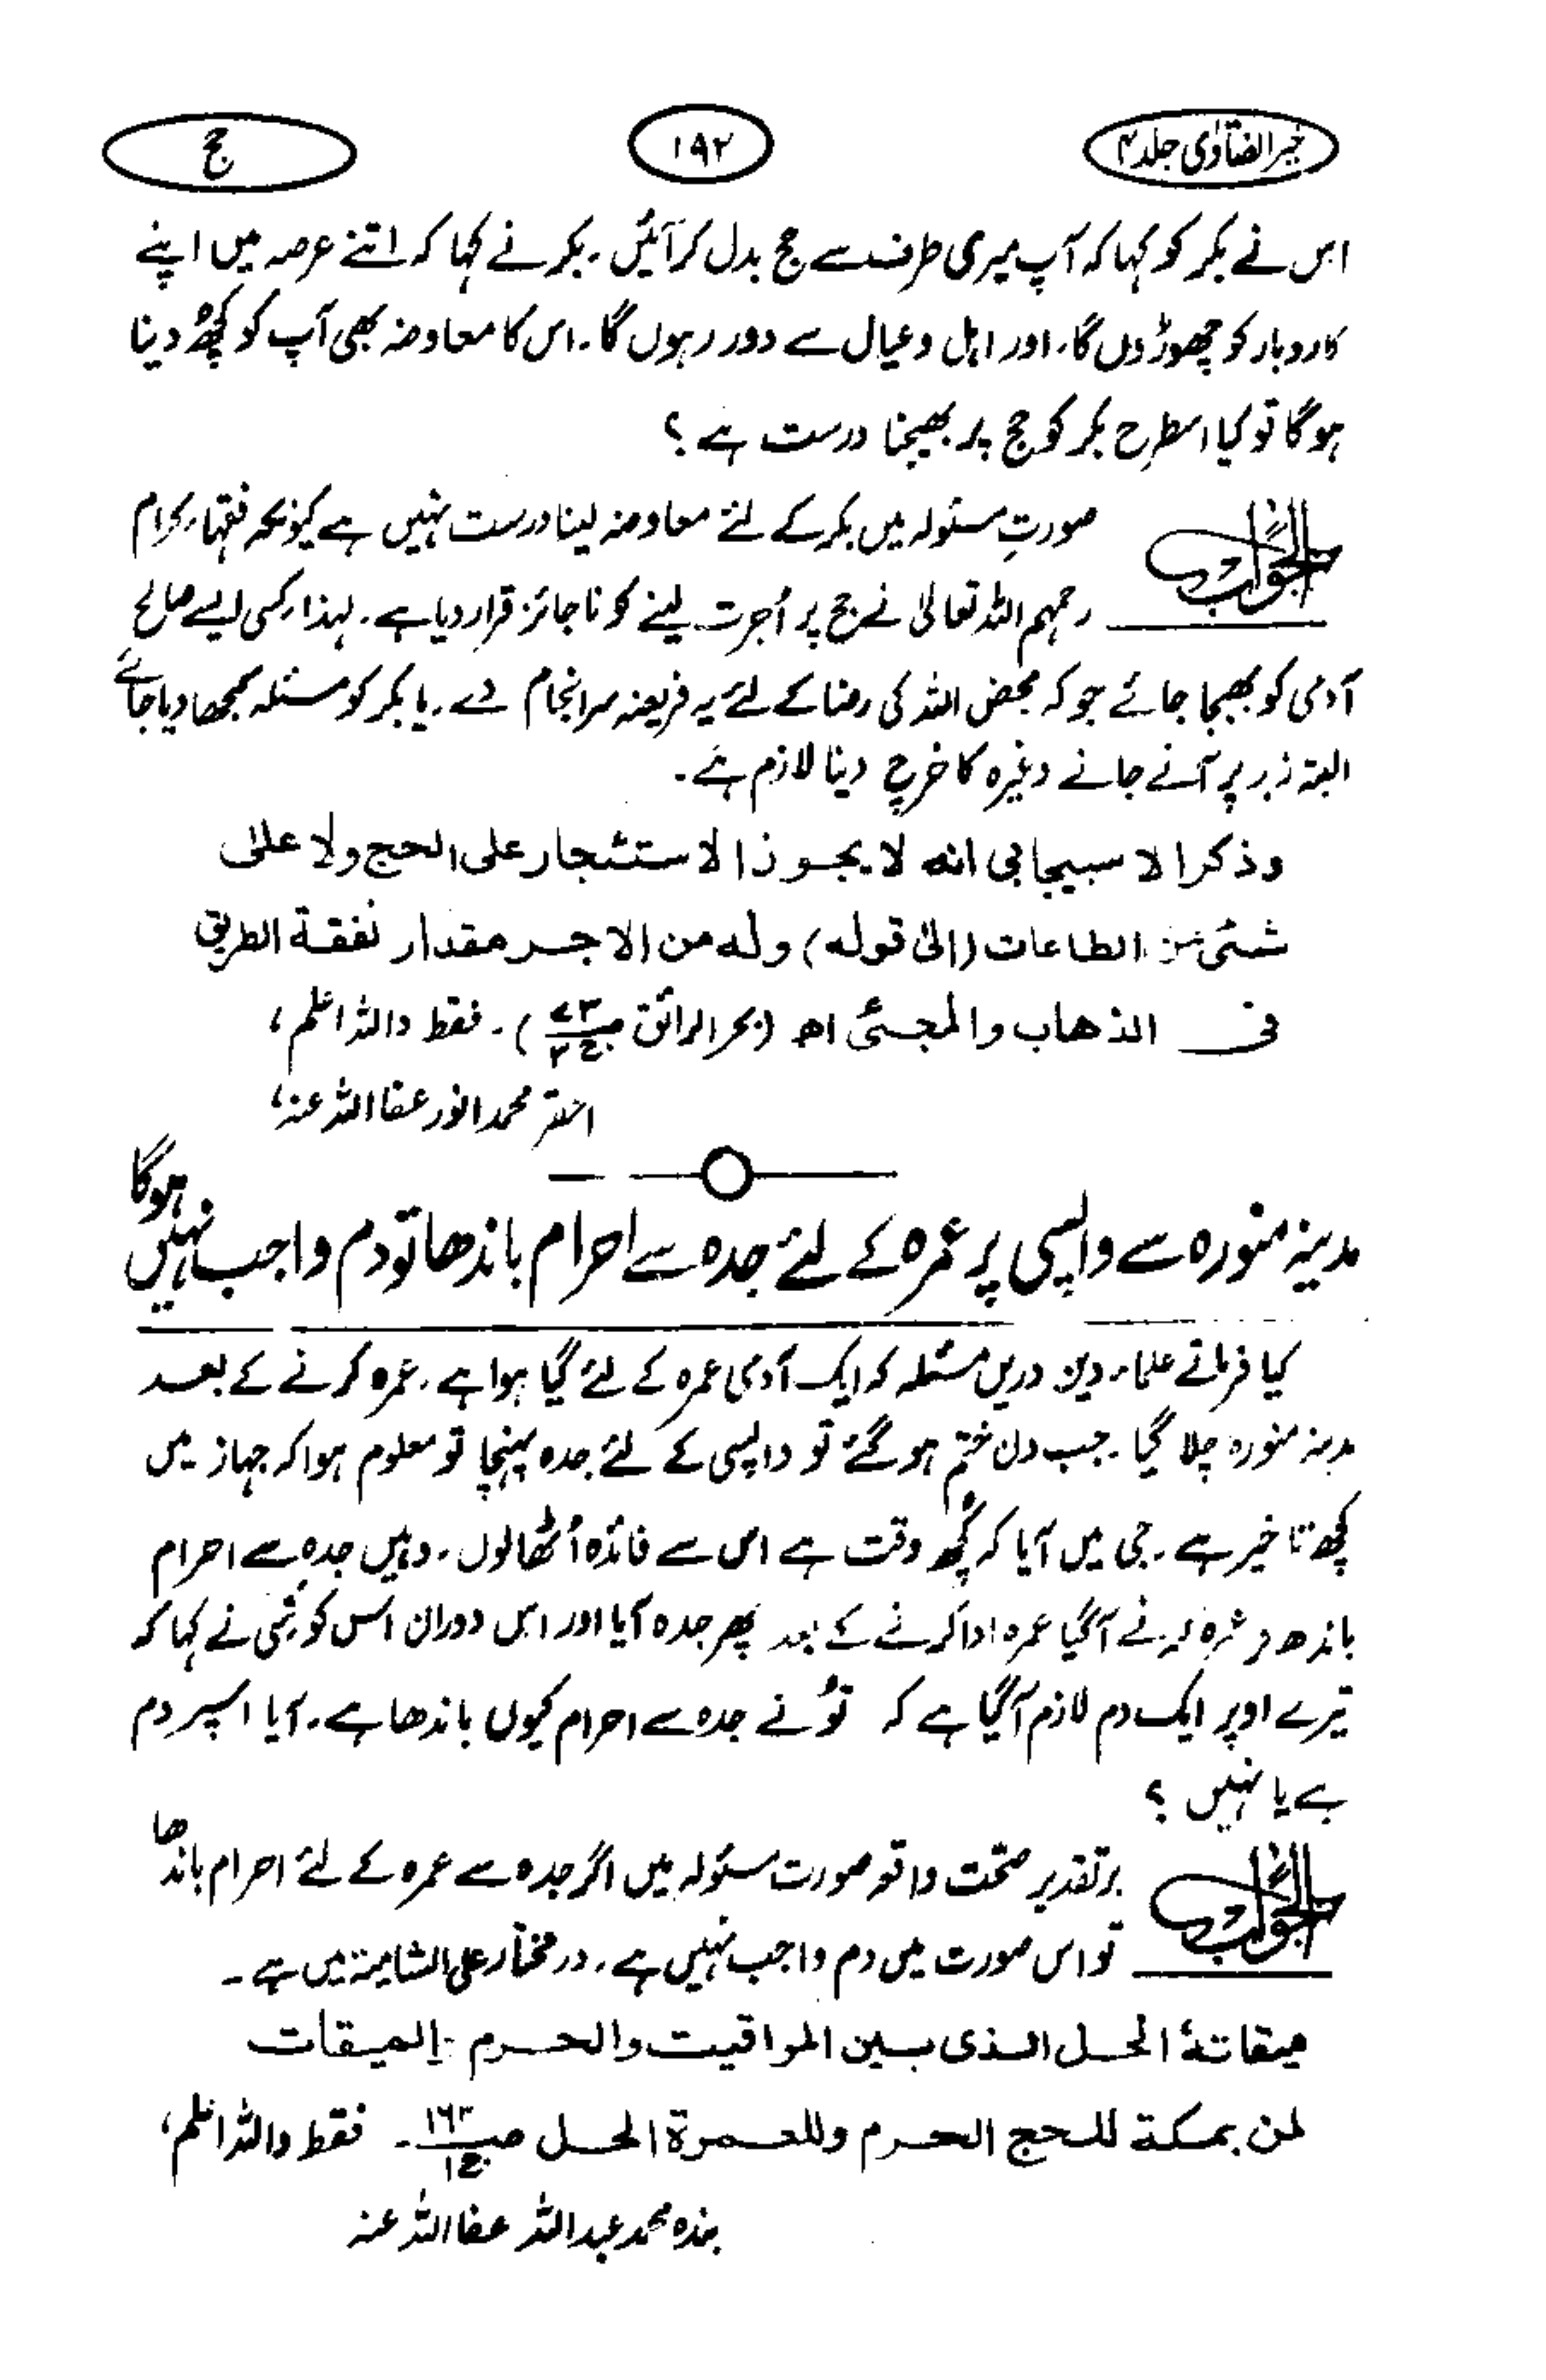 خیر الفتاوٰی جلد ۴
۱۹۲
حج
اس نے بکر کو کہا کہ آپ میری طرف سے حج بدل کر آئیں ۔ بکر نے کہا کہ اتنے عرصہ میں اپنے
کاروبار کو چھوڑ دوں گا، اور اہل و عیال سے دور رہوں گا ۔ اس کا معاوضہ بھی آپ کو کچھ دینا
ہوگا تو کیا اسطرح بکر کو حج پر بھیجنا درست ہے ؟
الجواب
صورتِ مسئولہ میں بکر کے لئے معاوضہ لینا درست نہیں ہے کیونکہ فقہاء کرام
رحمہم اللہ تعالیٰ نے حج پر اُجرت لینے کو ناجائز قرار دیا ہے ۔ لہذا کسی ایسے صالح
آدمی کو بھیجا جائے جو کہ محض اللہ کی رضا کے لئے یہ فریضہ سرانجام دے ۔ یا بکر کو مسئلہ سمجھا دیا جائے
البتہ زید پر آنے جانے وغیرہ کا خرچ دینا لازم ہے ۔
وذکر الاسبیجابی انه لا یجوز الاستئجار علی الحج ولا علیٰ
شئی من الطاعات (الیٰ قوله) وله من الاجر مقدار نفقة الطریق
فی الذهاب والمجئی اھ (بحر الرائق ص۷۳ ج۳) ۔ فقط واللہ اعلم ،
احقر محمد انور عفا اللہ عنہ ،
مدینہ منورہ سے واپسی پر عمرہ کے لئے جدہ سے احرام باندھا تو دم واجب نہیں ہوگا
کیا فرماتے علماء دین دریں مسئلہ کہ ایک آدمی عمرہ کے لئے گیا ہوا ہے ۔ عمرہ کرنے کے بعد
مدینہ منورہ چلا گیا ۔ جب دن ختم ہو گئے تو واپسی کے لئے جدہ پہنچا تو معلوم ہوا کہ جہاز میں
کچھ تاخیر ہے ۔ جی میں آیا کہ کچھ وقت ہے اس سے فائدہ اُٹھا لوں ۔ وہیں جدہ سے احرام
باندھ کر عمرہ کرنے آگیا عمرہ ادا کرنے کے بعد پھر جدہ آیا اور اس دوران اس کو کسی نے کہا کہ
تیرے اوپر ایک دم لازم آگیا ہے کہ تُو نے جدہ سے احرام کیوں باندھا ہے ۔ آیا اسپر دم
ہے یا نہیں ؟
الجواب
برتقدیر صحّت واقعہ صورت مسئولہ میں اگر جدہ سے عمرہ کے لئے احرام باندھا
تو اس صورت میں دم واجب نہیں ہے ۔ درمختار علی الشامیۃ میں ہے ۔
میقاتهٗ الحل الذی بین المواقیت والحرم المیقات
لمن بمکة للحج الحرم وللعمرة الحل ص۱۶۳ ج۱ ۔ فقط واللہ اعلم ،
بندہ محمد عبداللہ عفا اللہ عنہ